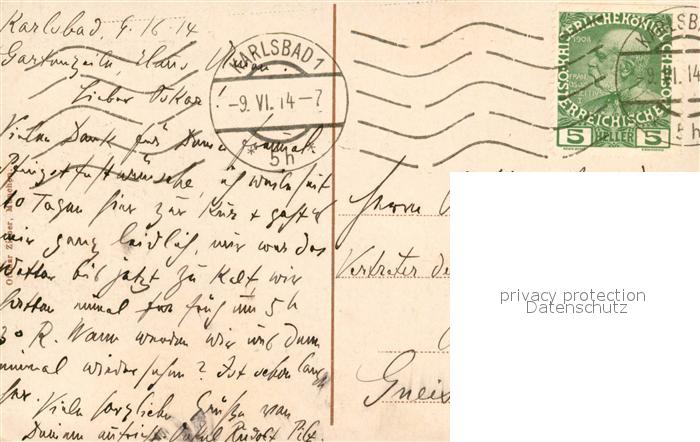 Karlsbad, 9.16.14
Gartenzeile, Haus
Lieber Oskar!
Vielen Dank für Deine
Pfingstwünsche, ich weile seit
10 Tagen hier zur Kur + geht es
mir ganz leidlich, nur war das
Wetter bis jetzt zu kalt wir
hatten einmal früh um 5 h
3° R. Wann werden wir uns denn
einmal wiedersehen? Ist schon lange
her. Viele herzliche Grüße von
Deinem Onkel Rudolf
KARLSBAD 1
-9.VI.14-7
* 5h *
1908
KAISERLICHE KÖNIGLICHE
ÖSTERREICHISCHE
5 HELLER 5
-9.VI.14
5h
Herrn
Vertreter de
Gneis
Ottmar Zieher, München
privacy protection
Datenschutz